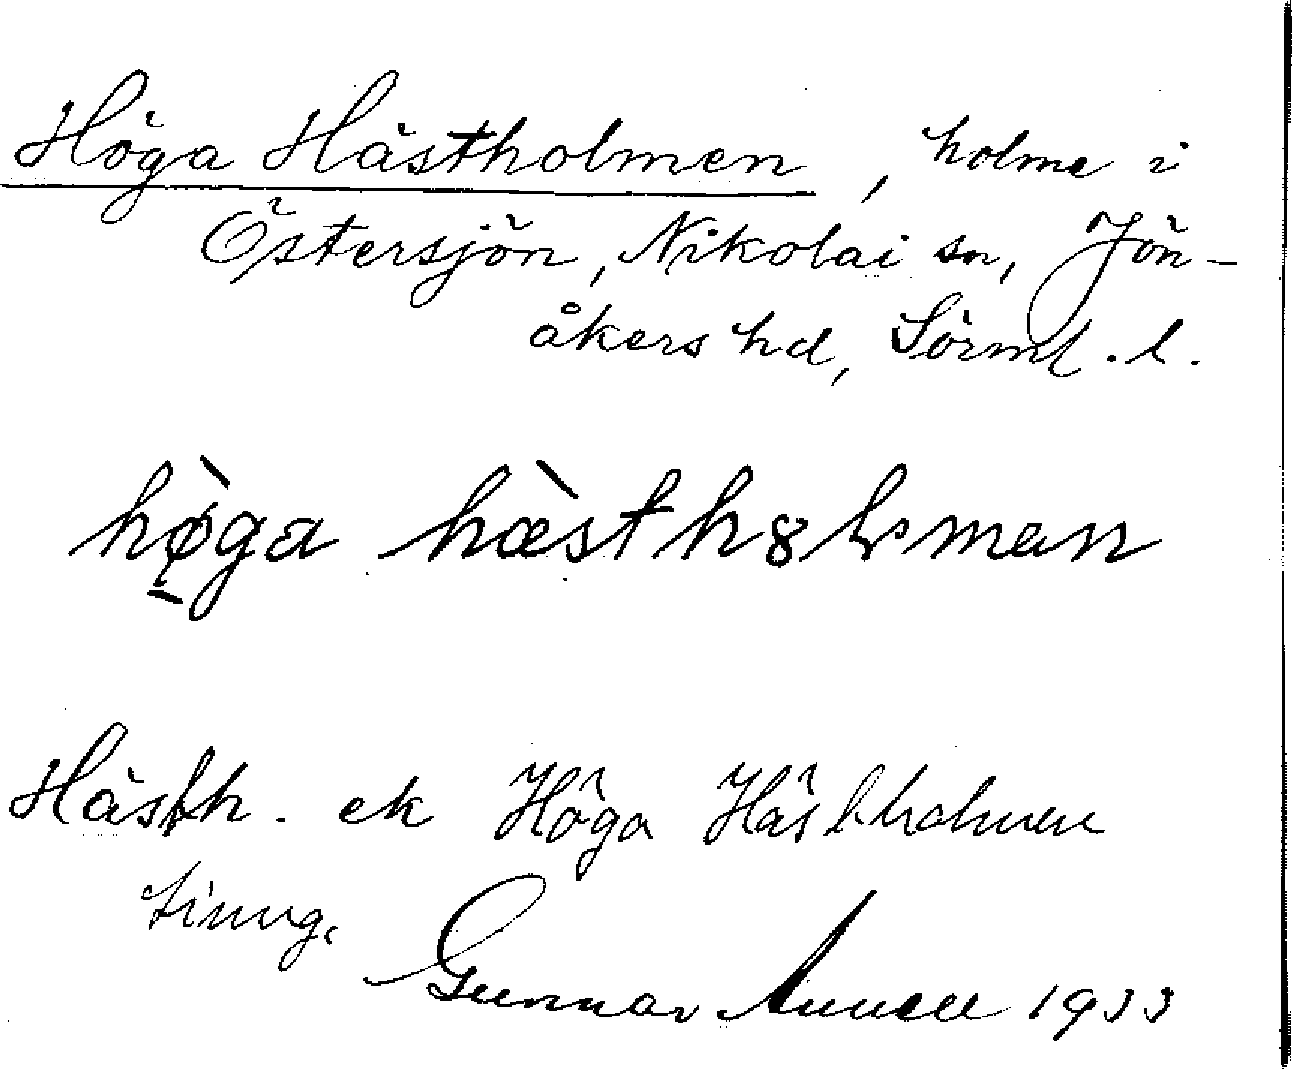 Höga Hästholmen, holme i
Östersjön, Nikolai sn, Jön-
åkers hd, Sörml. l.
hø̀ga hæ̀sthȣlman
Hästh. ek Höga Hästholmen
Gunnar Annell 1933